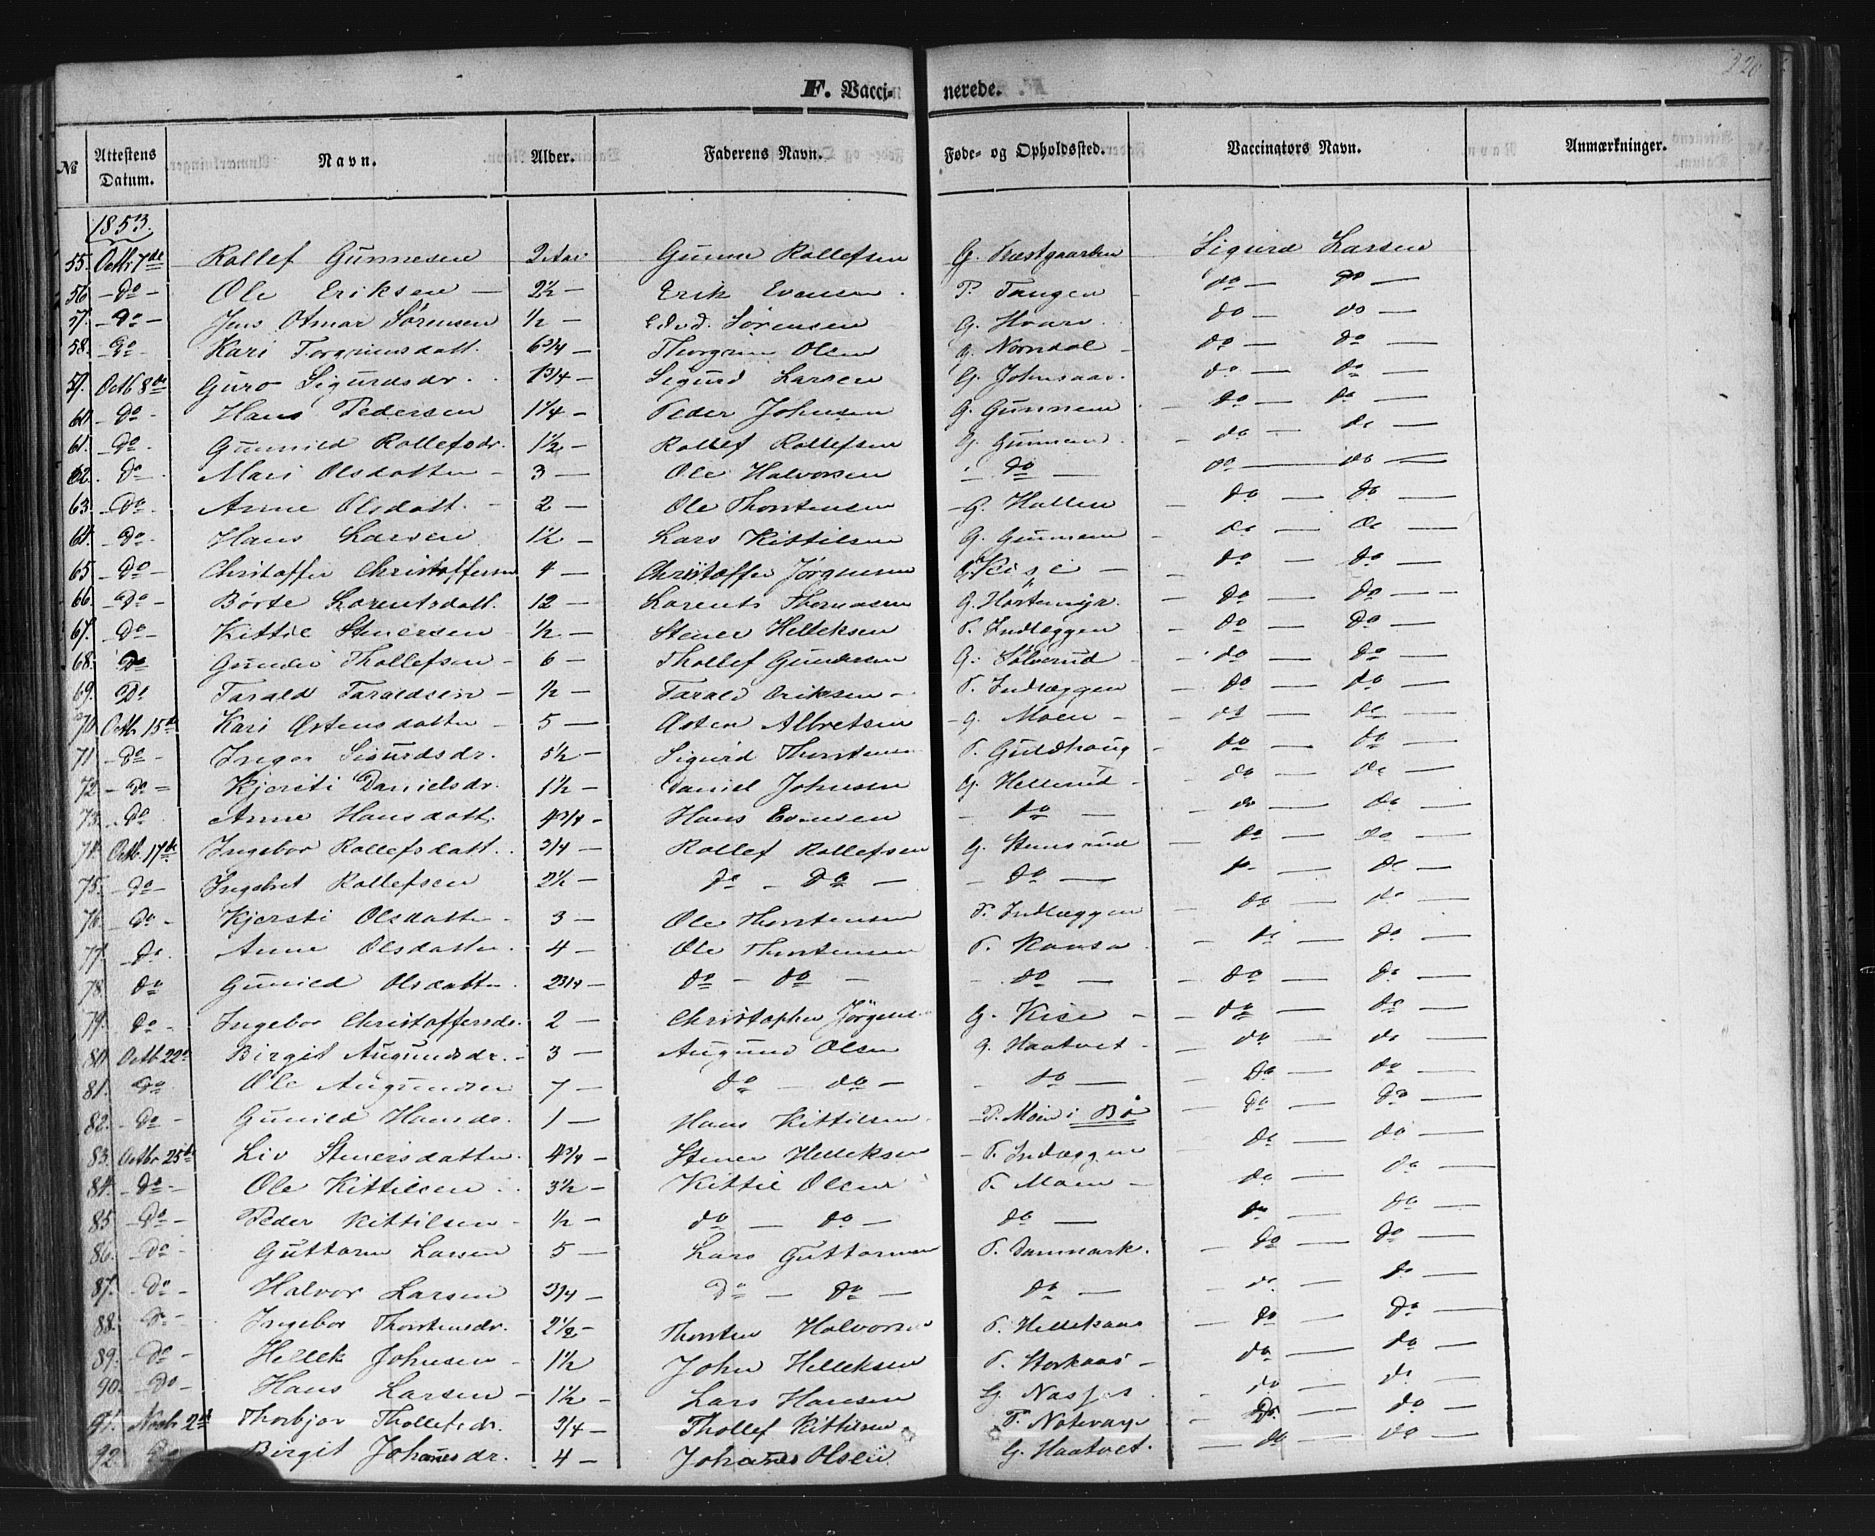 220
F. Vacci- nerede.
№ Attestens Datum. Navn. Alder. Faderens Navn. Føde- og Opholdssted. Vaccinators Navn. Anmærkninger.
1853.
55. Octbr 7de Rollef Gunnesen 2 Aar Gunne Rollefsen G. Præstgaarden Sigurd Larsen
56 - do - Ole Eriksen - 2½ - Erik Evensen P. Tangen do do -
57. - do - Jens Otmar Sørensen ½ - Edvd. Sørensen G. Hvara do do -
58. do - Kari Torgrimsdatt. 6¾ - Thorgrim Olsen G. Norndal - do - do -
59. Octb 8de Guro Sigurdsdr. 1¾ - Sigurd Larsen G. Johnsaas. do - do -
60. do - Hans Pedersen 1¼ - Peder Johnsen G. Gunnem - do - do -
61. do - Gunnild Rollefsdr. 1½ - Rollef Rollefsen G. Gunnem - do - do -
62. do - Mari Olsdatter - 3 - Ole Halvorsen - do - do - do -
63. - do - Anne Olsdatt. - 2 - Ole Thorstensen - G. Hallen - do - do -
64. - do - Hans Larsen 1½ - Lars Kittilsen G. Gunnem - do - do -
65. - do - Christoffer Christoffersen 4 - Christoffer Jørgensen G. Kise - - do - do -
66. - do - Børte Larentsdatt. 12 - Larents Thomasen G. Hortemyr. - do - do -
67. - do - Kittil Stenersen - ½ - Stener Helleksen P. Indlæggen - do - do -
68. do Gunder Thollefsen - 6 - Thollef Gundersen G. Sølverud - - do - do -
69. do Tarald Taraldsen - ½ - Tarald Eriksen - P. Indlæggen - do - do -
70 Octb. 15de Kari Østensdatter - 5 - Østen Albretsen - G. Moen - - do - do -
71 - do - Inger Sigurdsdr. 5½ - Sigurd Thorstens P. Guldhaug - do - do -
72 - do - Kjersti Danielsdr. 1½ - Daniel Johnsen G. Hellerud - do - do -
73. - do Anne Hansdatt. 4¾ - Hans Evensen - do - - do - do -
74. Octb. 17de Ingebor Rollefsdatt. ¾ - Rollef Rollefsen G. Stensrud do - do -
75. - do - Ingebret Rollefsen 2½ - do - do - - do - do - do -
76. - do - Kjersti Olsdatter - 3 - Ole Thorstensen P. Indlæggen - do - do -
77. - do - Anne Olsdatter. 4 - Ole Thorstensen P. Ransa - do - do -
78. do Gunild Olsdatter 2¾ - do - do - - do - - do - do -
79. do - Ingebor Christoffersdr. 2 - Christopher Jørgens G. Kise - - do - do -
80. Octb. 22d Birgit Augundsdr. - 3 - Augund Olsen G. Haatvet - - do - do -
81. do Ole Augundsen 7 - do do - - do - - do - do -
82. - do - Gunild Hansdr. 1 - Hans Kittilsen - P. Moen i Bø - do - do -
83. Octbr 25de Liv Stenersdatter. 4¾ - Stener Helleksen - P. Indlæggen do - do -
84. - do - Ole Kittilsen 3½ - Kittil Olsen P. Moen - do - do -
85. - do - Peder Kittilsen - ½ - do - do - do - do - do -
86. - do Guttorm Larsen 5 - Lars Guttormsen P. Danmark. - do - do -
87. - do - Halvor Larsen ¾ - do - do - do - - do - do -
88. - do - Ingebor Thorstensdr. 2½ - Thorsten Halvorsen P. Hellekaas - do - do -
89. - do - Hellek Johnsen - 1½ John Helleksen P. Storkaas - do - do -
90. - do - Hans Larsen - 1½ - Lars Hansen G. - do - do -
91. Novbr 2d Thorbjør Thollefsdr. ¾ - Thollef Kittilsen P. - do - do -
92. do Birgit Johannesdr. 4 - Johannes Olsen G. Haatvet. - do do -